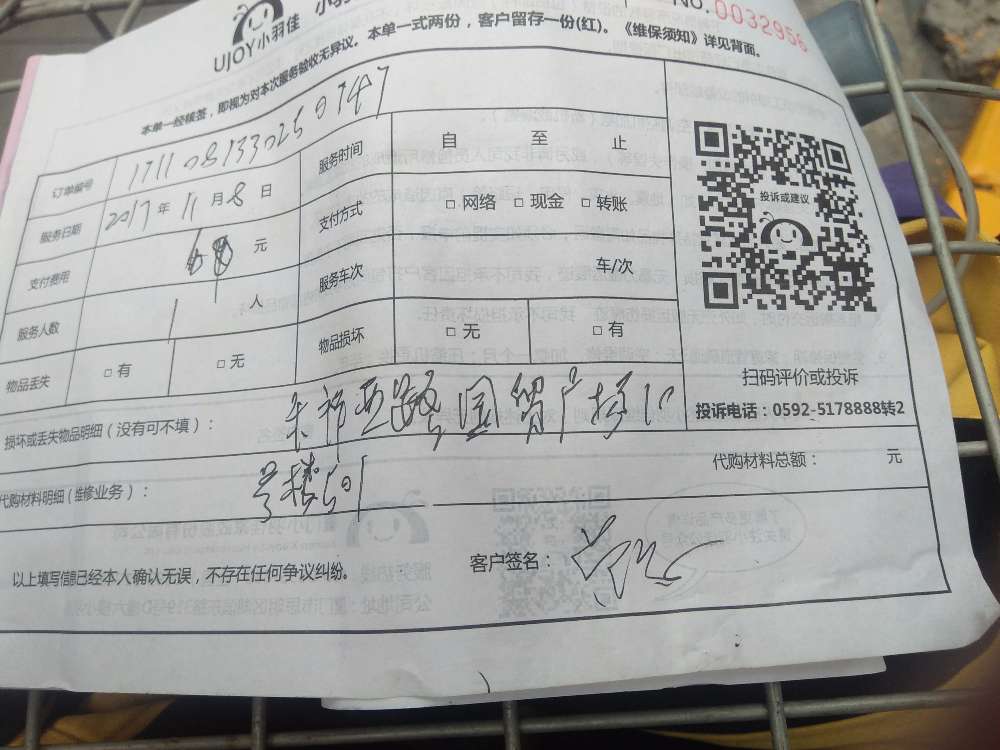 UJOY小羽佳 小羽
NO.0032956
本单一经核签，即视为对本次服务验收无异议。本单一式两份，客户留存一份(红)。《维保须知》详见背面。
订单编号 1711081330250747 服务时间 自 至 止
服务日期 2017年11月8日 支付方式 □ 网络 □ 现金 □ 转账
支付费用 元 服务车次 车/次
服务人数 1 人
物品丢失 □ 有 □ 无 物品损坏 □ 无 □ 有
投诉或建议
扫码评价或投诉
投诉电话：0592-5178888转2
损坏或丢失物品明细（没有可不填）： 国贸广场10
代购材料明细（维修业务）： 号楼501
代购材料总额： 元
以上填写信息已经本人确认无误，不存在任何争议纠纷。 客户签名：